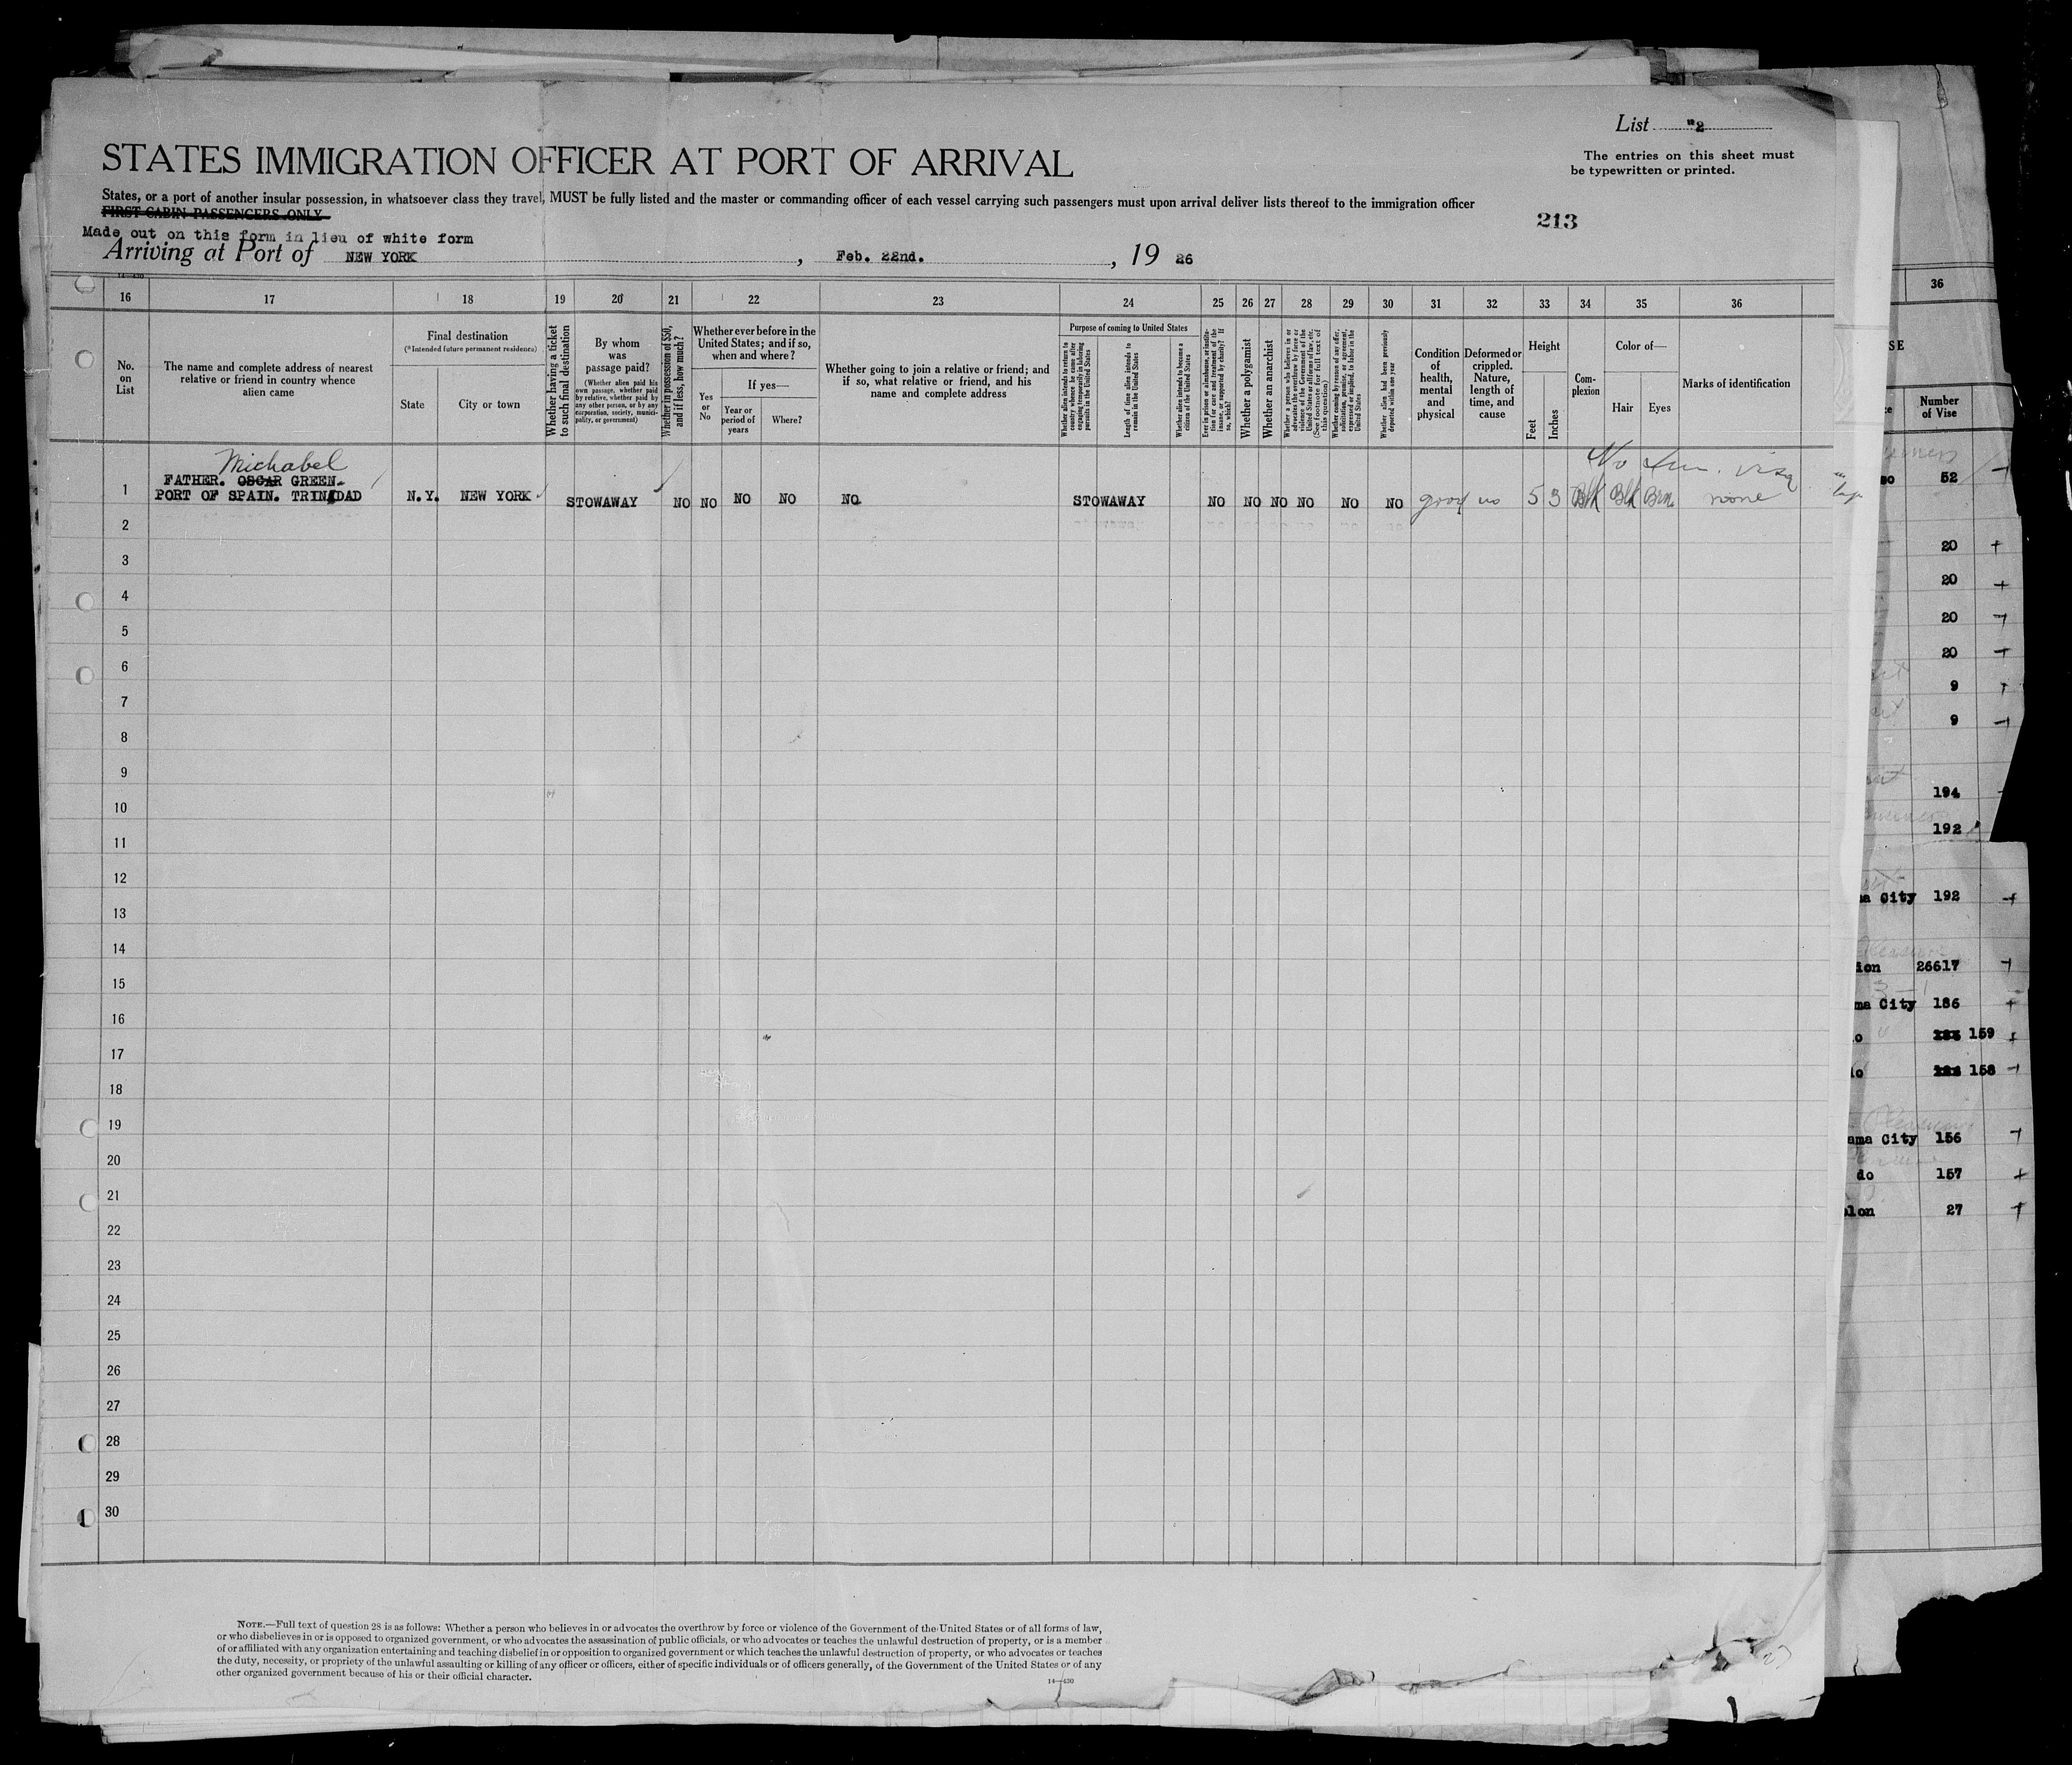 List "2
STATES IMMIGRATION OFFICER AT PORT OF ARRIVAL
The entries on this sheet must
be typewritten or printed.
States, or a port of another insular possession, in whatsoever class they travel, MUST be fully listed and the master or commanding officer of each vessel carrying such passengers must upon arrival deliver lists thereof to the immigration officer
FIRST-CABIN PASSENGERS ONLY
213
Made out on this form in lieu of white form
Arriving at Port of NEW YORK , Feb. 22nd. , 19 26
14—430
16 17 18 19 20 21 22 23 24 25 26 27 28 29 30 31 32 33 34 35 36
No.
on
List
The name and complete address of nearest
relative or friend in country whence
alien came
Final destination
(*Intended future permanent residence)
State
City or town
Whether having a ticket
to such final destination
By whom
was
passage paid?
(Whether alien paid his
own passage, whether paid
by relative, whether paid by
any other person, or by any
corporation, society, munici-
pality, or government)
Whether in possession of $50,
and if less, how much?
Whether ever before in the
United States; and if so,
when and where?
Yes
or
No
If yes—
Year or
period of
years
Where?
Whether going to join a relative or friend; and
if so, what relative or friend, and his
name and complete address
Purpose of coming to United States
Whether alien intends to return to
country whence he came after
engaging temporarily in laboring
pursuits in the United States
Length of time alien intends to
remain in the United States
Whether alien intends to become a
citizen of the United States
Ever in prison or almshouse, or institu-
tion for care and treatment of the
insane, or supported by charity? If
so, which?
Whether a polygamist
Whether an anarchist
Whether a person who believes in or
advocates the overthrow by force or
violence of the Government of the
United States or all forms of law, etc.
(See footnote for full text of
this question)
Whether coming by reason of any offer,
solicitation, promise, or agreement,
expressed or implied, to labor in the
United States
Whether alien had been previously
deported within one year
Condition
of
health,
mental
and
physical
Deformed or
crippled.
Nature,
length of
time, and
cause
Height
Feet
Inches
Com-
plexion
Color of—
Hair
Eyes
Marks of identification
Michabel
No Imm. visa
1 FATHER. OSCAR GREEN.
PORT OF SPAIN. TRINIDAD N.Y. NEW YORK STOWAWAY NO NO NO NO NO STOWAWAY NO NO NO NO NO NO good no 5 3 Blk Blk Brn. none
2
3
4
5
6
7
8
9
10
11
12
13
14
15
16
17
18
19
20
21
22
23
24
25
26
27
28
29
30
NOTE.—Full text of question 28 is as follows: Whether a person who believes in or advocates the overthrow by force or violence of the Government of the United States or of all forms of law,
or who disbelieves in or is opposed to organized government, or who advocates the assassination of public officials, or who advocates or teaches the unlawful destruction of property, or is a member
of or affiliated with any organization entertaining and teaching disbelief in or opposition to organized government or which teaches the unlawful destruction of property, or who advocates or teaches
the duty, necessity, or propriety of the unlawful assaulting or killing of any officer or officers, either of specific individuals or of officers generally, of the Government of the United States or of any
other organized government because of his or their official character.
14—430
36
SE
Number
of Vise
so 52
20
20
20
20
9
9
194
192
ma City 192
ion 26617
ma City 186
o 159
do 158
ama City 156
do 157
olon 27